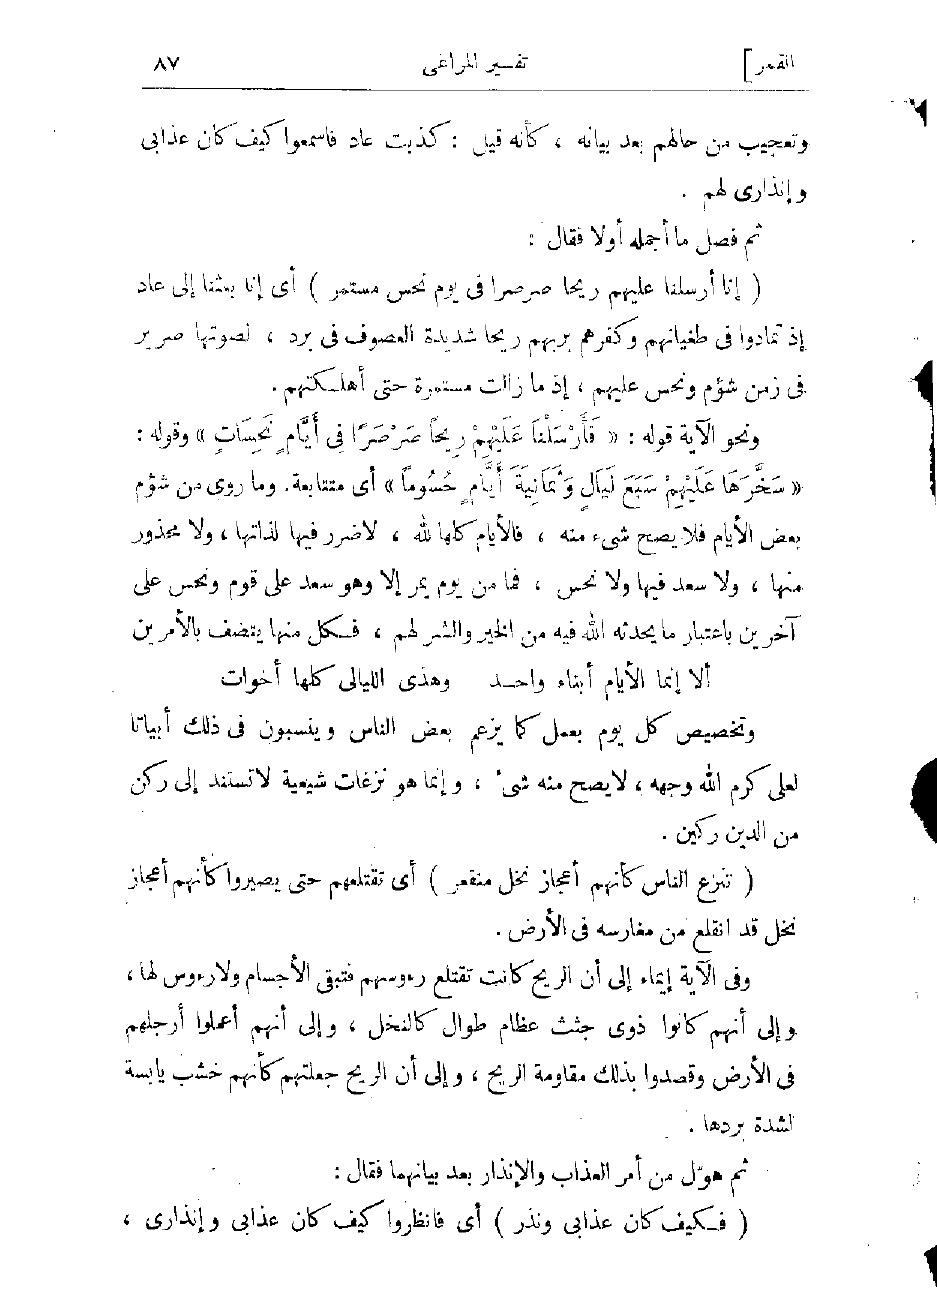 القمر] تفسير المراغى ٨٧
وتعجيب من حالهم بعد بيانه ، كأنه قيل : كذبت عاد فاسمعوا كيف كان عذابى
وإنذارى لهم .
ثم فصل ما أجمله أولا فقال :
( إنا أرسلنا عليهم ريحا صرصرا فى يوم نحس مستمر ) أى إنا بعثنا إلى عاد
إذ تمادوا فى طغيانهم وكفرهم بربهم ريحا شديدة العصوف فى برد ، لصوتها صرير
فى زمن شؤم ونحس عليهم ، إذ ما زالت مستمرة حتى أهلكتهم .
ونحو الآية قوله : « فَأَرْسَلْنَا عَلَيْهِمْ رِيحاً صَرْصَرًا فِى أَيَّامٍ نَحِسَاتٍ » وقوله :
« سَخَّرَهَا عَلَيْهِمْ سَبْعَ لَيَالٍ وَثَمَانِيَةَ أَيَّامٍ حُسُوماً » أى متتابعة . وما روى من شؤم
بعض الأيام فلا يصح شىء منه ، فالأيام كلها لله ، لا ضرر فيها لذاتها ، ولا محذور
منها ، ولا سعد فيها ولا نحس ، فما من يوم يمر إلا وهو سعد على قوم ونحس على
آخرين باعتبار ما يحدثه الله فيه من الخير والشر لهم ، فكل منها يتصف بالأمرين
ألا إنما الأيام أبناء واحد وهذى الليالى كلها أخوات
وتخصيص كل يوم بعمل كما يزعم بعض الناس وينسبون فى ذلك أبياتا
لعلى كرم الله وجهه ، لا يصح منه شىء ، وإنما هو نزغات شيعية لا تستند إلى ركن
من الدين ركين .
( تنزع الناس كأنهم أعجاز نخل منقعر ) أى تقتلعهم حتى يصيروا كأنهم أعجاز
نخل قد انقلع من مغارسه فى الأرض .
وفى الآية إيماء إلى أن الريح كانت تقتلع رءوسهم فتبقى الأجسام ولا رءوس لها ،
وإلى أنهم كانوا ذوى جثث عظام طوال كالنخل ، وإلى أنهم أعملوا أرجلهم
فى الأرض وقصدوا بذلك مقاومة الريح ، وإلى أن الريح جعلتهم كأنهم خشب يابسة
لشدة بردها .
ثم هوّل من أمر العذاب والإنذار بعد بيانهما فقال :
( فكيف كان عذابى ونذر ) أى فانظروا كيف كان عذابى وإنذارى ،